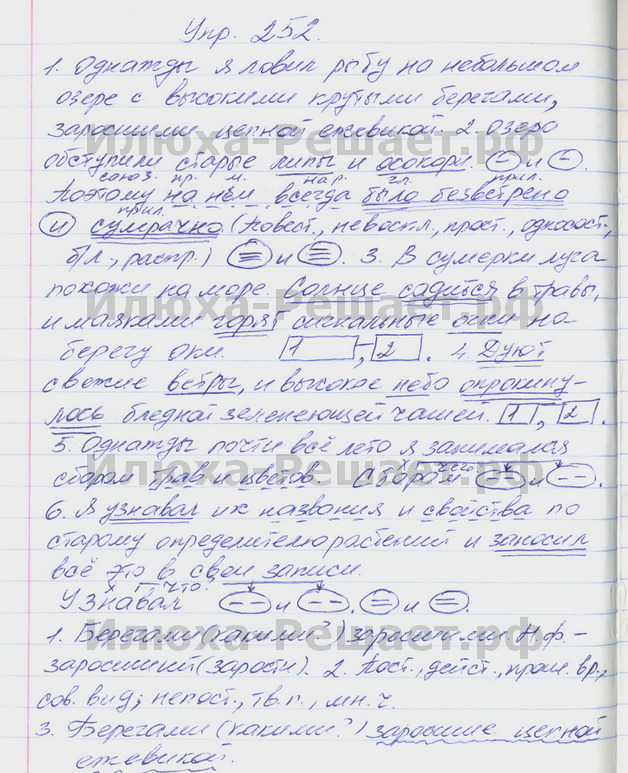 Упр. 252.
1. Однажды я ловил рыбу на небольшом
озере с высокими крутыми берегами,
заросшими цепкой ежевикой. 2. Озеро
обступили старые липы и осокори. (-) и (-).
союз. пр. м. нар. гл. прил.
Поэтому на нём всегда было безветрено
прил.
и сумрачно (Повест., невоскл., прост., односост.,
б/л, распр.) (=) и (=). 3. В сумерки луга
похожи на море. Солнце садится в травы,
и маяками горят сигнальные огни на
берегу Оки. [1], [2]. 4. Дуют
свежие ветры, и высокое небо опрокину-
лось бледной зеленеющей чашей. [1], [2].
5. Однажды почти всё лето я занимался
сбором трав и цветов. Сбором чего (--) и (--).
6. Я узнавал их названия и свойства по
старому определителю растений и заносил
всё это в свои записи.
что?
Узнавал (--) и (--). (=) и (=).
1. Берегами (какими?) заросшими. Н.ф. -
заросший (зарасти). 2. Пост., дейст., прош. вр.,
сов. вид; непост., тв.п., мн.ч.
3. Берегами (какими?) заросшие цепкой
ежевикой.
Илюха-Решает.рф
Илюха-Решает.рф
Илюха-Решает.рф